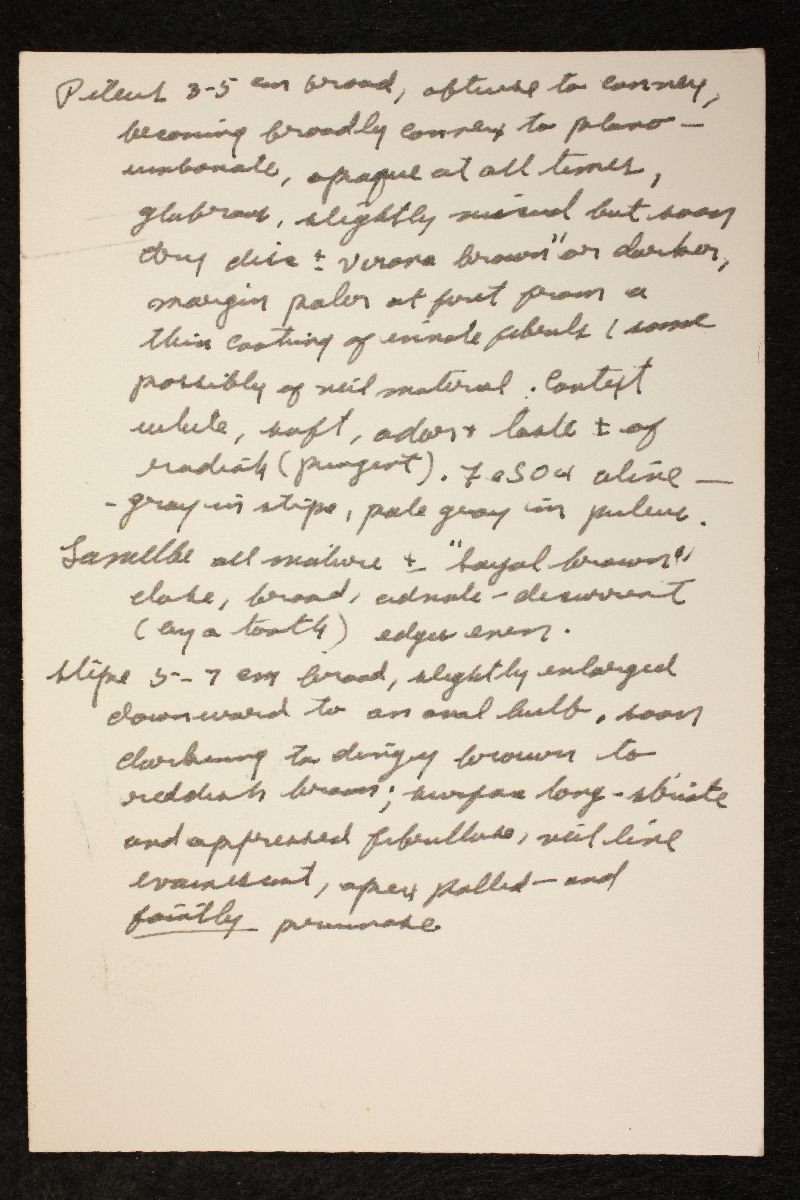 Pileus 3-5 cm broad, obtuse to convex,
becoming broadly convex to plano-
umbonate, opaque at all times,
glabrous, slightly viscid but soon
dry disc ± verona brown" or darker,
margin paler at first from a
thin coating of innate fibrils (some
possibly of veil material. Context
white, soft, odor + taste ± of
radish (pungent). FeSO4 olive-
-gray in stipe, pale gray in pileus.
Lamellae all mature ± "sayal brown"
close, broad, adnate-decurrent
(by a tooth) edges even.
Stipe 5-7 cm broad, slightly enlarged
downward to an oval bulb, soon
darkening to dingy brown to
reddish brown; surface long-striate
and appressed fibrillose, veil line
evanescent, apex pallid-and
faintly pruinose